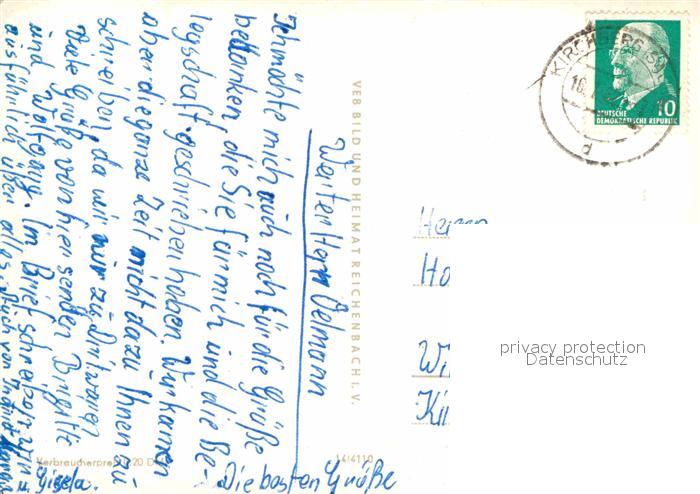 Werter Herr Oelmann
Ich möchte mich auch noch für die Grüße
bedanken, die Sie für mich und die Be-
legschaft geschrieben haben. Wir kamen
aber die ganze Zeit nicht dazu Ihnen zu
schreiben, da wir nur zu dritt waren
Viele Grüße von hier senden Birgitt
und Wolfgang. Im Brief schreibe
ausführlich über alles. Auch von Ingrid
u. Gisela.
Die besten Grüße
Verbraucherpreis 0,20 D
14/4110
VEB BILD UND HEIMAT REICHENBACH I. V.
KIRCHBERG (SACHS)
16.
d
10
DEUTSCHE
DEMOKRATISCHE REPUBLIK
Herrn
Ho
Wi
Ki
privacy protection
Datenschutz